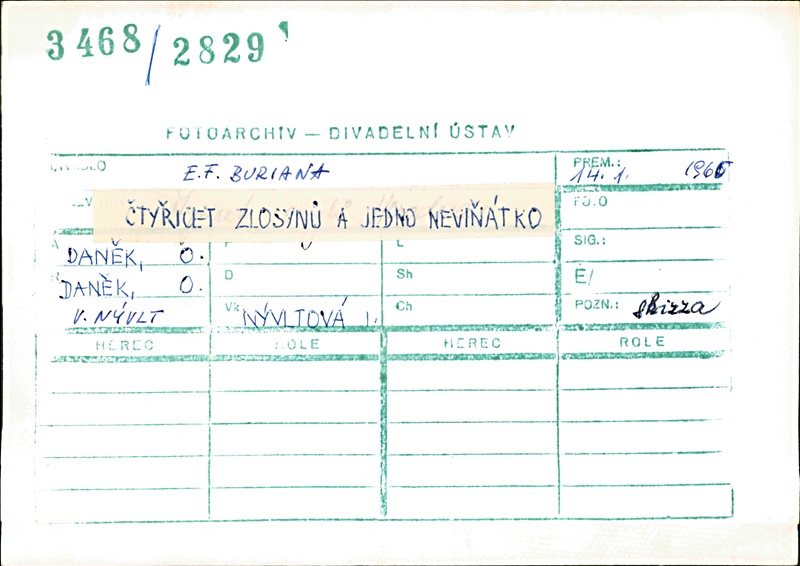 3468/2829
FOTOARCHIV — DIVADELNÍ ÚSTAV
E.F. BURIANA
PREM.: 14. 1.
ČTYŘICET ZLOSYNŮ A JEDNO NEVIŇÁTKO
FOTO
DANĚK, O.
L
SIG.:
DANĚK, O.
D
Sh
Ě/
V. NÝVLT
NÝVLTOVÁ
Ch
POZN.: skizza
HEREC ROLE HEREC ROLE